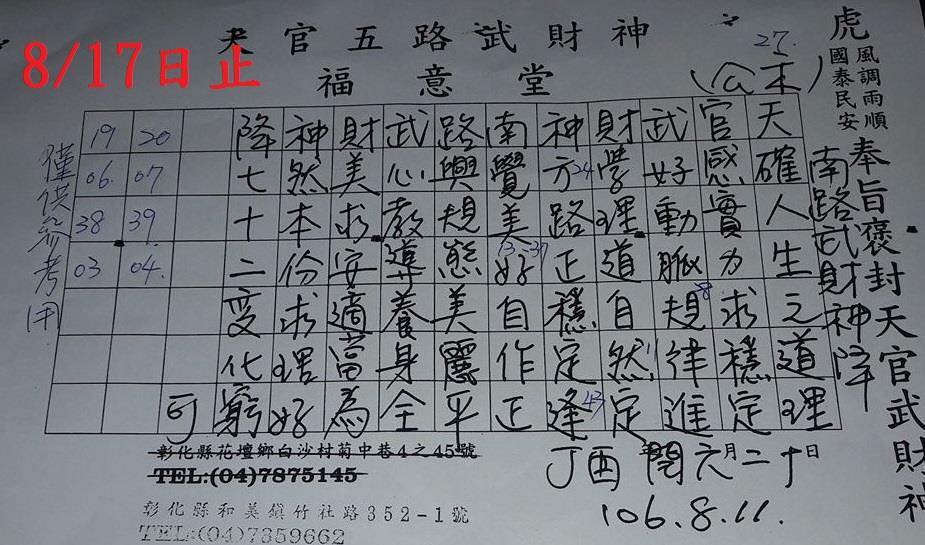 8/17日止
天官五路武財神
福意堂
27.
虎
風調雨順
國泰民安
奉旨褒封天官武財神
南路武財神降
天確人生之道理
官感實力求穩定
武好動脈規律進
財學理道自然定
神方路正穩定逢
南覺美好自作正
路興規態美麗平
武心教導養身全
財美求安適當為
神然本份求理好
降七十二變化窮
可
24
38
43
20 07 39 04.
19 06. 38 03
僅供參考用
丁酉年閏六月二十日
106.8.11.
彰化縣花壇鄉白沙村菊中巷4之45號
TEL:(04)7875145
彰化縣和美鎮竹社路352-1號
TEL:(04)7359662